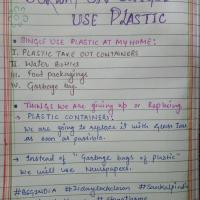 USE PLASTIC
• SINGLE USE PLASTIC AT MY HOME:
I. PLASTIC TAKE OUT CONTAINERS
II. Water Bottles
III. Food packagings
IV. Garbage bag.
• THINGS we are giving up or Replacing
→ PLASTIC CONTAINERS:
We are going to replace it with Glass Jars
as soon as possible.
→ Instead of "Garbage bags of plastic"
We will use Newspapers.